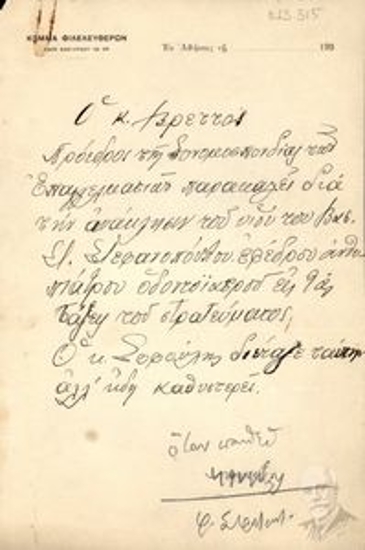 ΚΟΜΜΑ ΦΙΛΕΛΕΥΘΕΡΩΝ
Ἐν Ἀθήναις τῇ 193
Ὁ κ. Βρεττὸς
Πρόεδρος τῆς Συνομοσπονδίας τῶν
Ἐπαγγελματιῶν παρακαλεῖ διὰ
τὴν ἀνάκλησιν τοῦ υἱοῦ του Βασ.
Στεφανοπούλου ἐφέδρου ἀνθυ
πιάτρου ὀδοντοϊατροῦ εἰς τὰς
τάξεις τοῦ στρατεύματος,
Ὁ κ. Σοφούλης διέταξε
ἀλλ' ἤδη καθυστερεῖ.
ὅταν